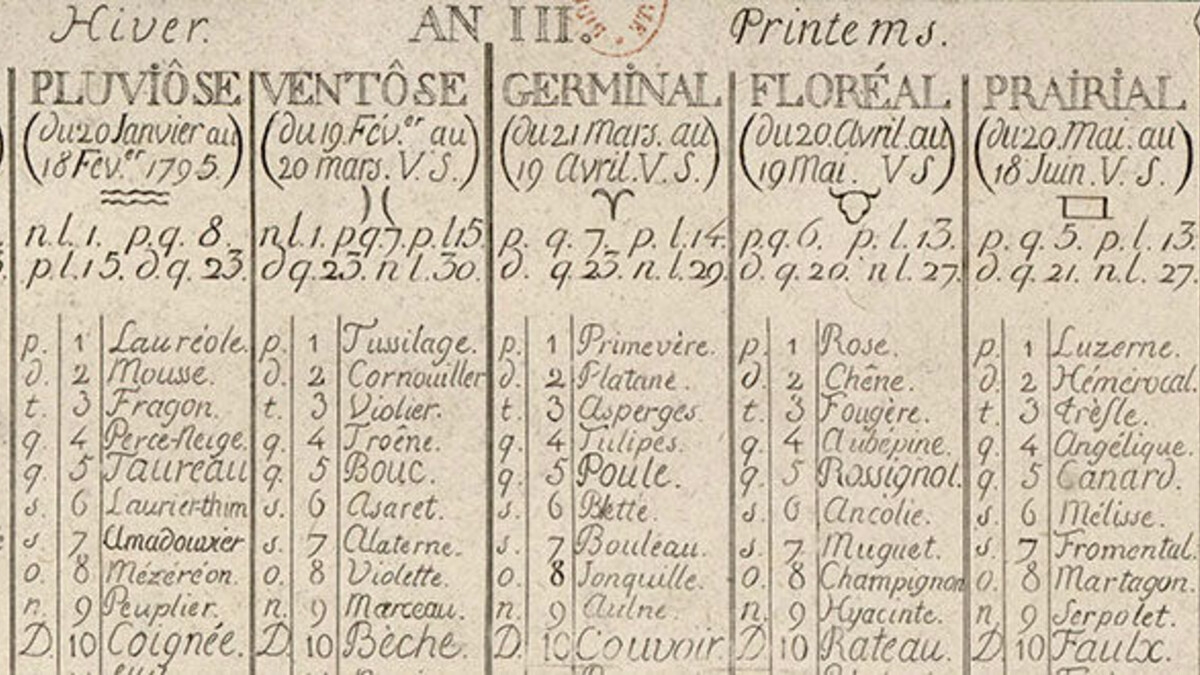 Hiver. AN III. Printems.
PLUVIÔSE VENTÔSE GERMINAL FLORÉAL PRAIRIAL
(du 20 Janvier au (du 19. Fév.er au (du 21 Mars. au (du 20. Avril. au (du 20. Mai. au
18 Fév.er 1795.) 20 mars. V. S.) 19 Avril. V. S.) 19 Mai. V S) 18 Juin. V. S.)
n. l. 1. p. q. 8. n l. 1. p q 7. p. l 15. p. q. 7. p. l. 14. p. q. 6. p. l. 13. p. q. 5. p. l. 13
p. l. 15. d. q. 23. d q. 23. n l. 30. d. q. 23. n. l. 29. d. q. 20. n l. 27. d. q. 21. n. l. 27.
p. 1 Lauréole. p. 1 Tussilage. p. 1 Primevère. p. 1 Rose. p. 1 Luzerne.
d. 2 Mousse. d. 2 Cornouiller d. 2 Platane. d. 2 Chêne. d. 2 Hémérocal
t. 3 Fragon. t. 3 Violier. t. 3 Asperges. t. 3 Fougère. t. 3 Trèfle.
q. 4 Perce-Neige. q. 4 Troêne. q. 4 Tulipes. q. 4 Aubepine. q. 4 Angélique.
q. 5 Taureau q. 5 Bouc. q. 5 Poule. q. 5 Rossignol. q. 5 Canard.
s. 6 Laurier-thim s. 6 Asaret. s. 6 Bette. s. 6 Ancolie. s. 6 Mélisse.
s. 7 Amadouvier s. 7 Alaterne. s. 7 Bouleau. s. 7 Muguet. s. 7 Fromental.
o. 8 Mézéréon. o. 8 Violette. o. 8 Jonquille. o. 8 Champignon o. 8 Martagon.
n. 9 Peuplier. n. 9 Marceau. n. 9 Aulne. n. 9 Hyacinte. n. 9 Serpolet.
D. 10 Coignée. D. 10 Bèche. D. 10 Couvoir D 10 Rateau. D 10 Faulx.